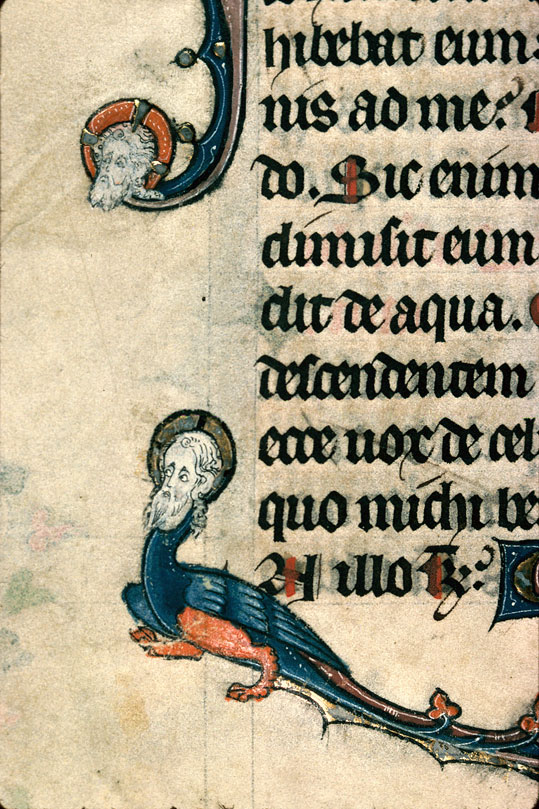 hibebat eum
nis ad me?
do. Sic enim
dimisit eum
dit de aqua.
descendentem
ecce uox de cel
quo michi be
In illo